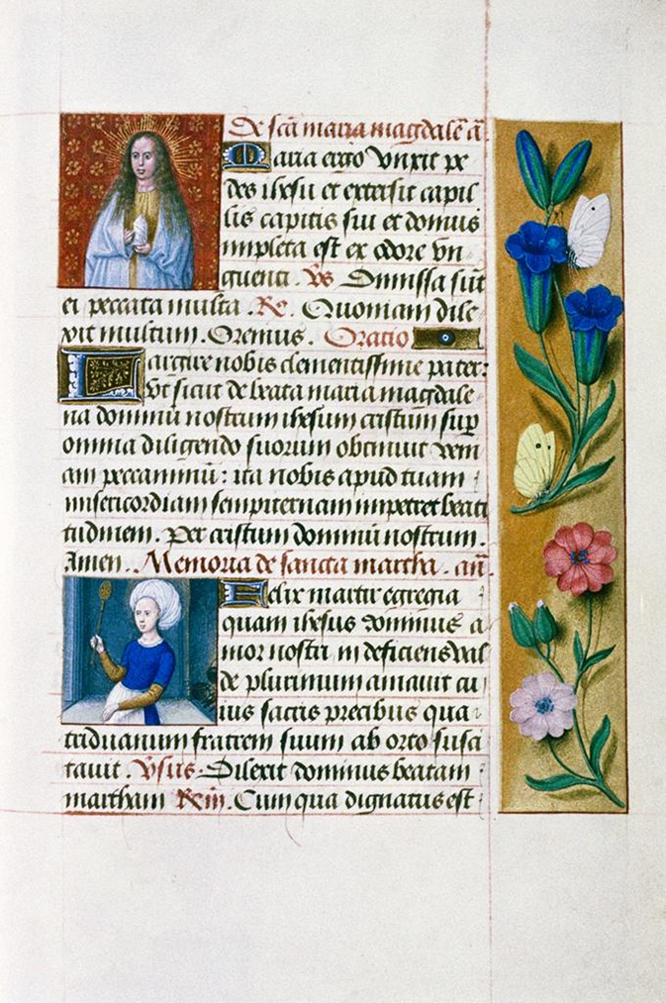 De scā maria magdalēa ā.
Maria ergo vnxit pe
des ihesu et extersit capil
lis capitis sui et domus
impleta est ex odore vn
guenti. Vs Dimissa sūt
ei peccata multa. Re. Quoniam dile
xit multum. Oremus. Oratio
Largire nobis clementissime pater:
vt sicut de beata maria magdale
na dominū nostrum ihesum cristum sup
omnia diligendo suorum obtinuit veni
am peccaminū: ita nobis apud tuam
misericordiam sempiternam impetret beati
tudinem. Per cristum dominū nostrum.
Amen. Memoria de sancta martha. añ.
Felix martir egregia
quam ihesus dominus a
mor nostri in deficiens val
de plurimum amauit cu
ius sacris precibus qua
triduanum fratrem suum ab orco susci
tauit. Vsus. Dilexit dominus beatam
martham Rem. Cum qua dignatus est